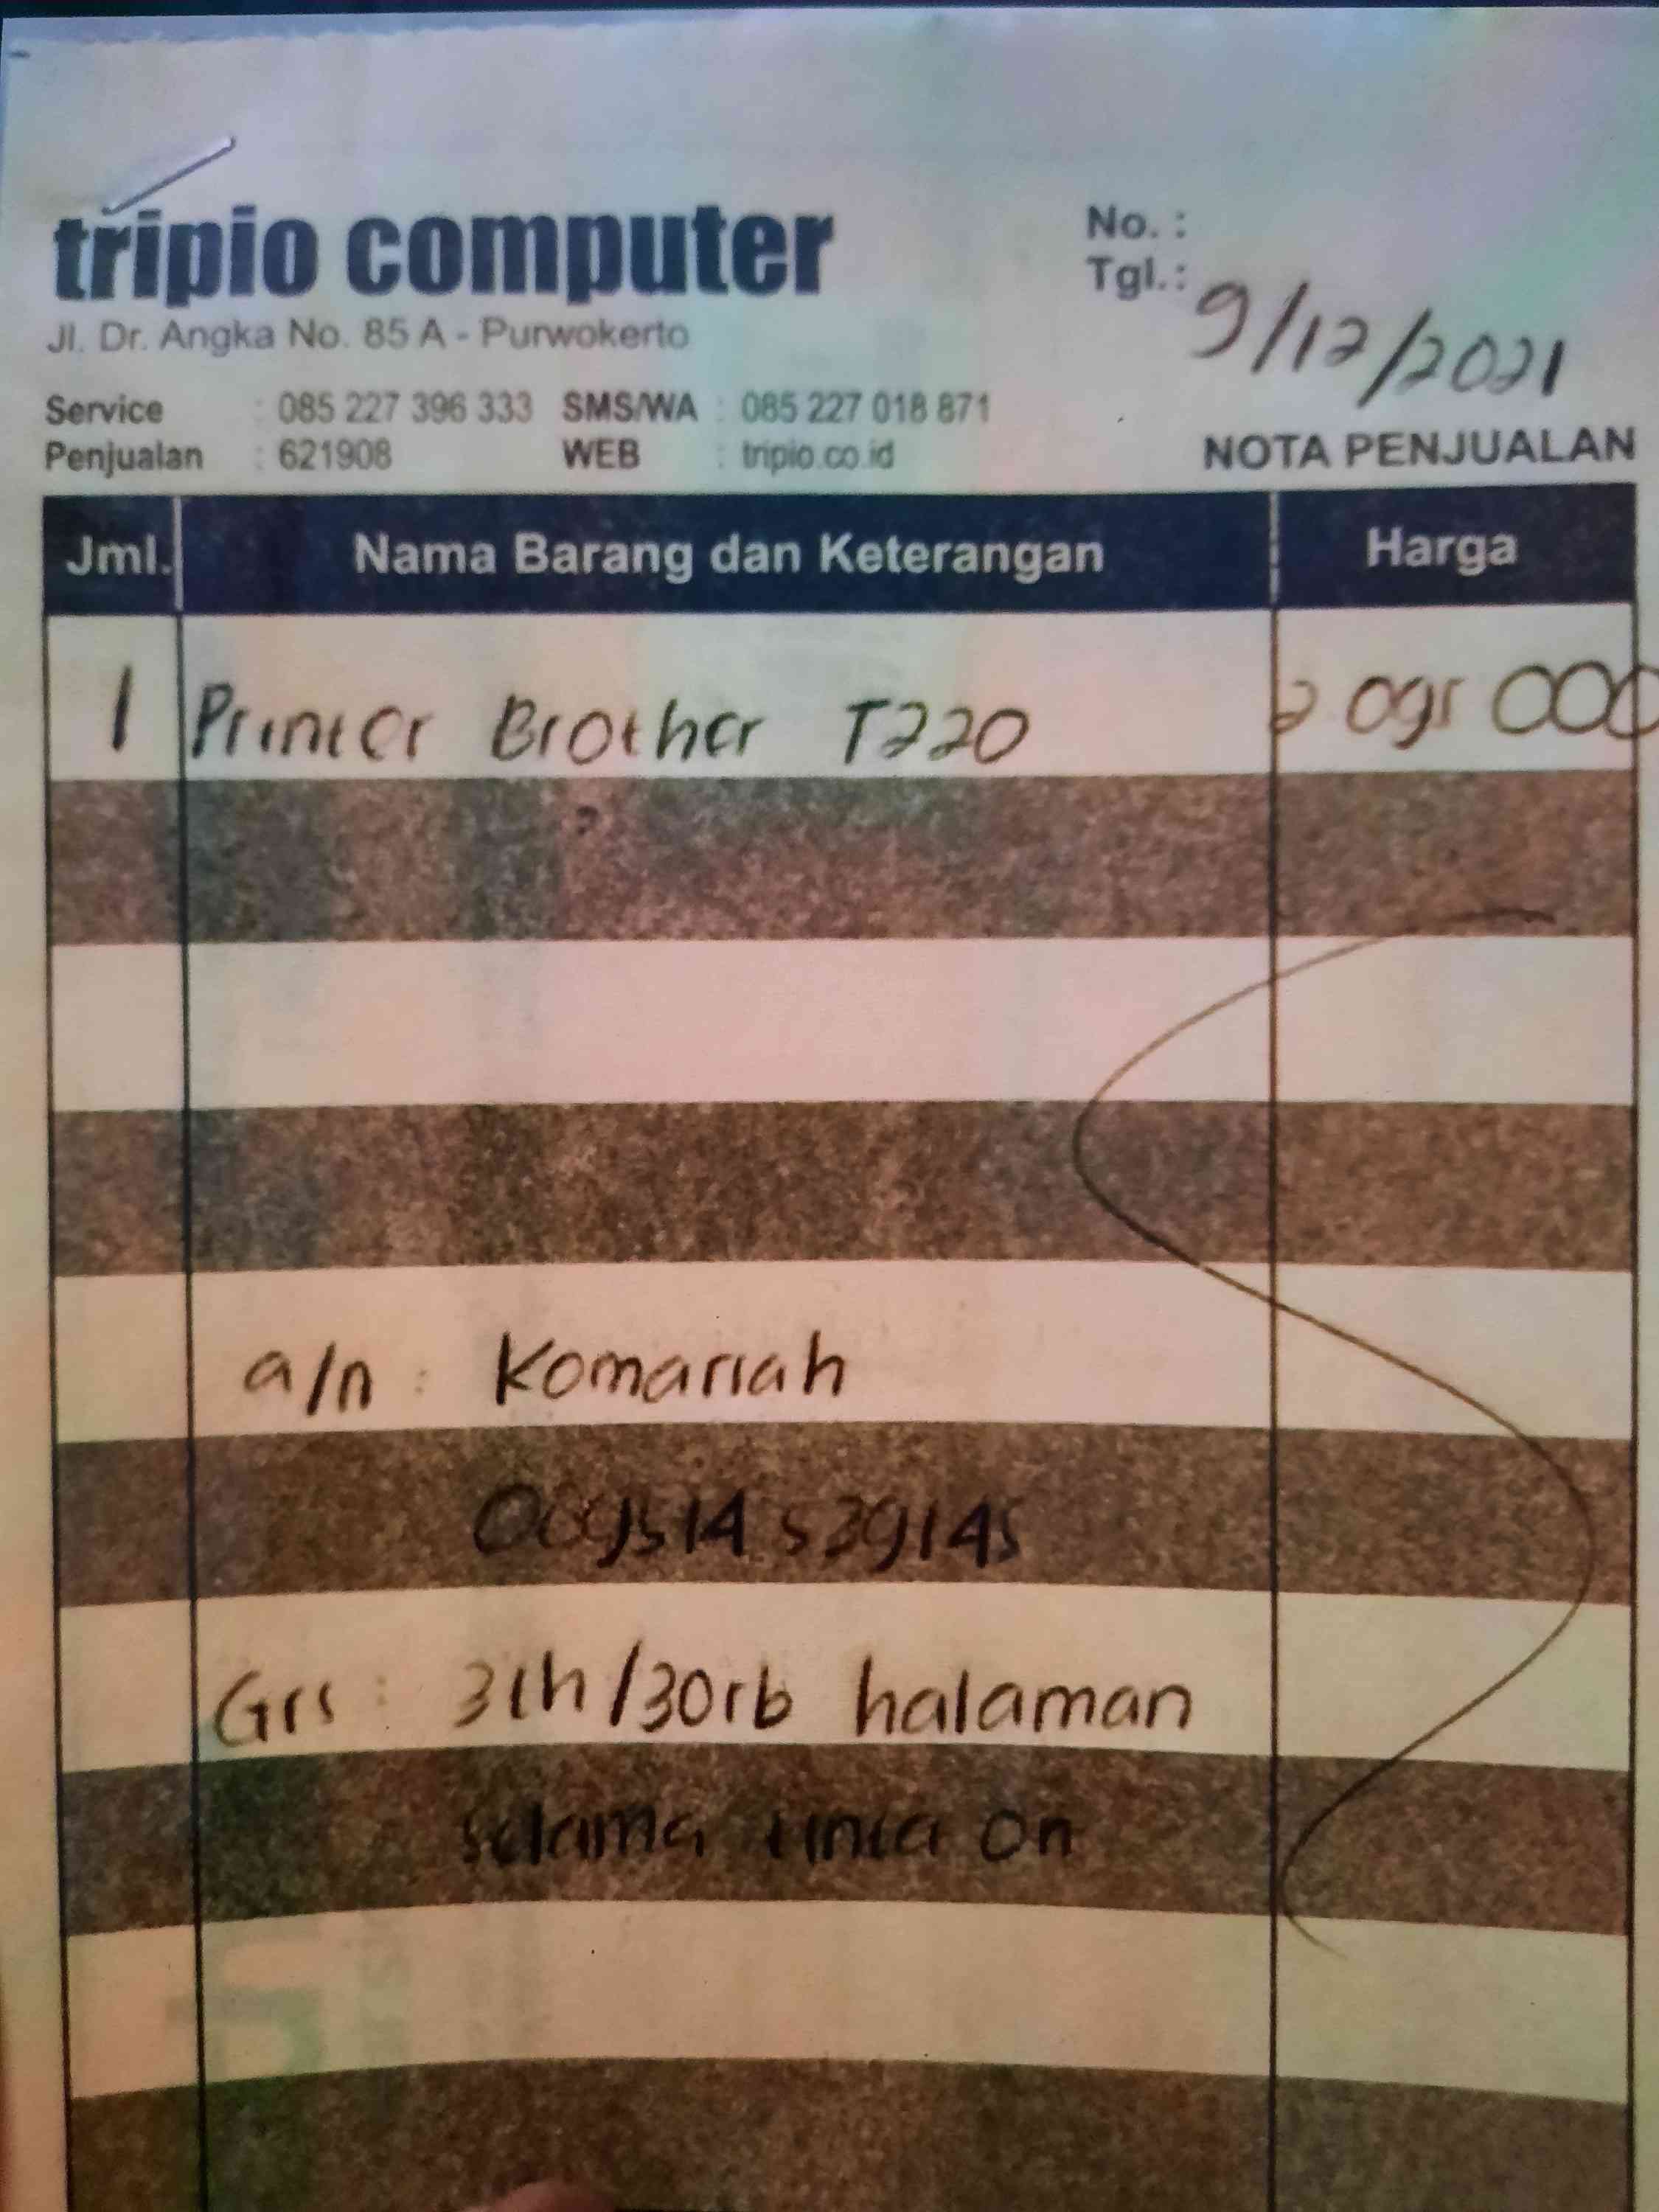 tripio computer
Jl. Dr. Angka No. 85 A - Purwokerto
No. :
Tgl. : 9/12/2021
Service : 085 227 396 333 SMS/WA : 085 227 018 871
Penjualan : 621908 WEB : tripio.co.id
NOTA PENJUALAN
Jml. Nama Barang dan Keterangan Harga
1 Printer Brother T220 2 095 000
a/n : Komariah
Grs : 3th/30rb halaman
selama tinta on